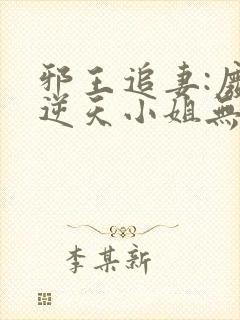 邪王追妻:
逆天小姐無
李某新